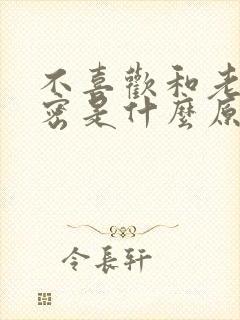 不喜歡和老
密是什麼原
令長軒